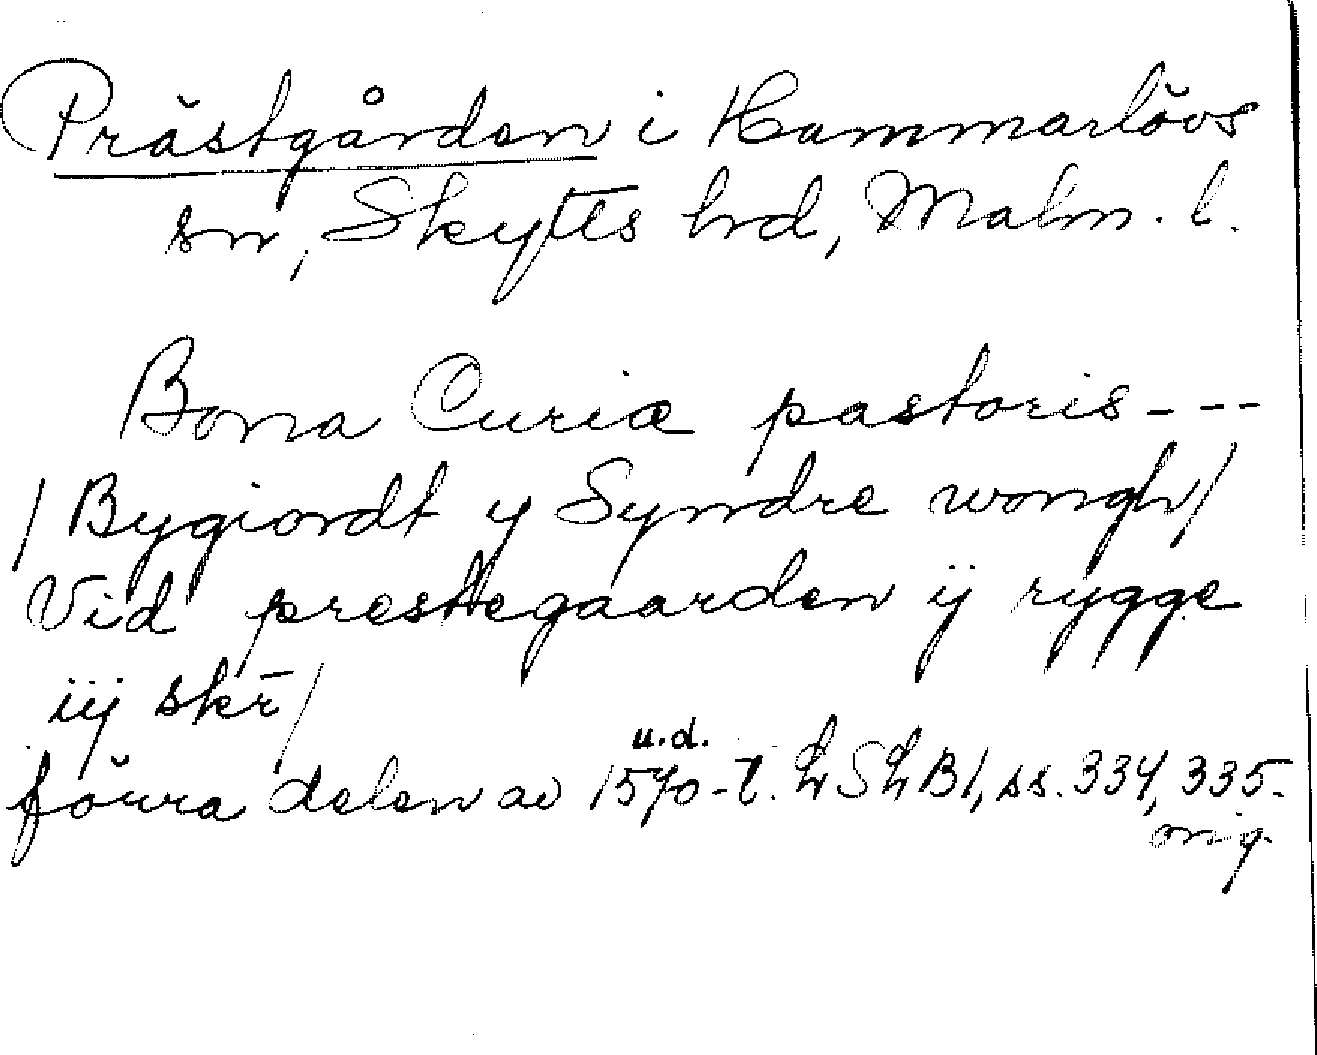 Prästgården i Hammarlövs
sn, Skytts hrd, Malm. l.
Bona Curiæ pastoris - - -
/ Bygiordt y Syndre wongh /
Vid prestegaarden ij rygge
iij skr /
förra delen av 1570-t. u.d. LSLB1, ss. 334, 335-
orig.